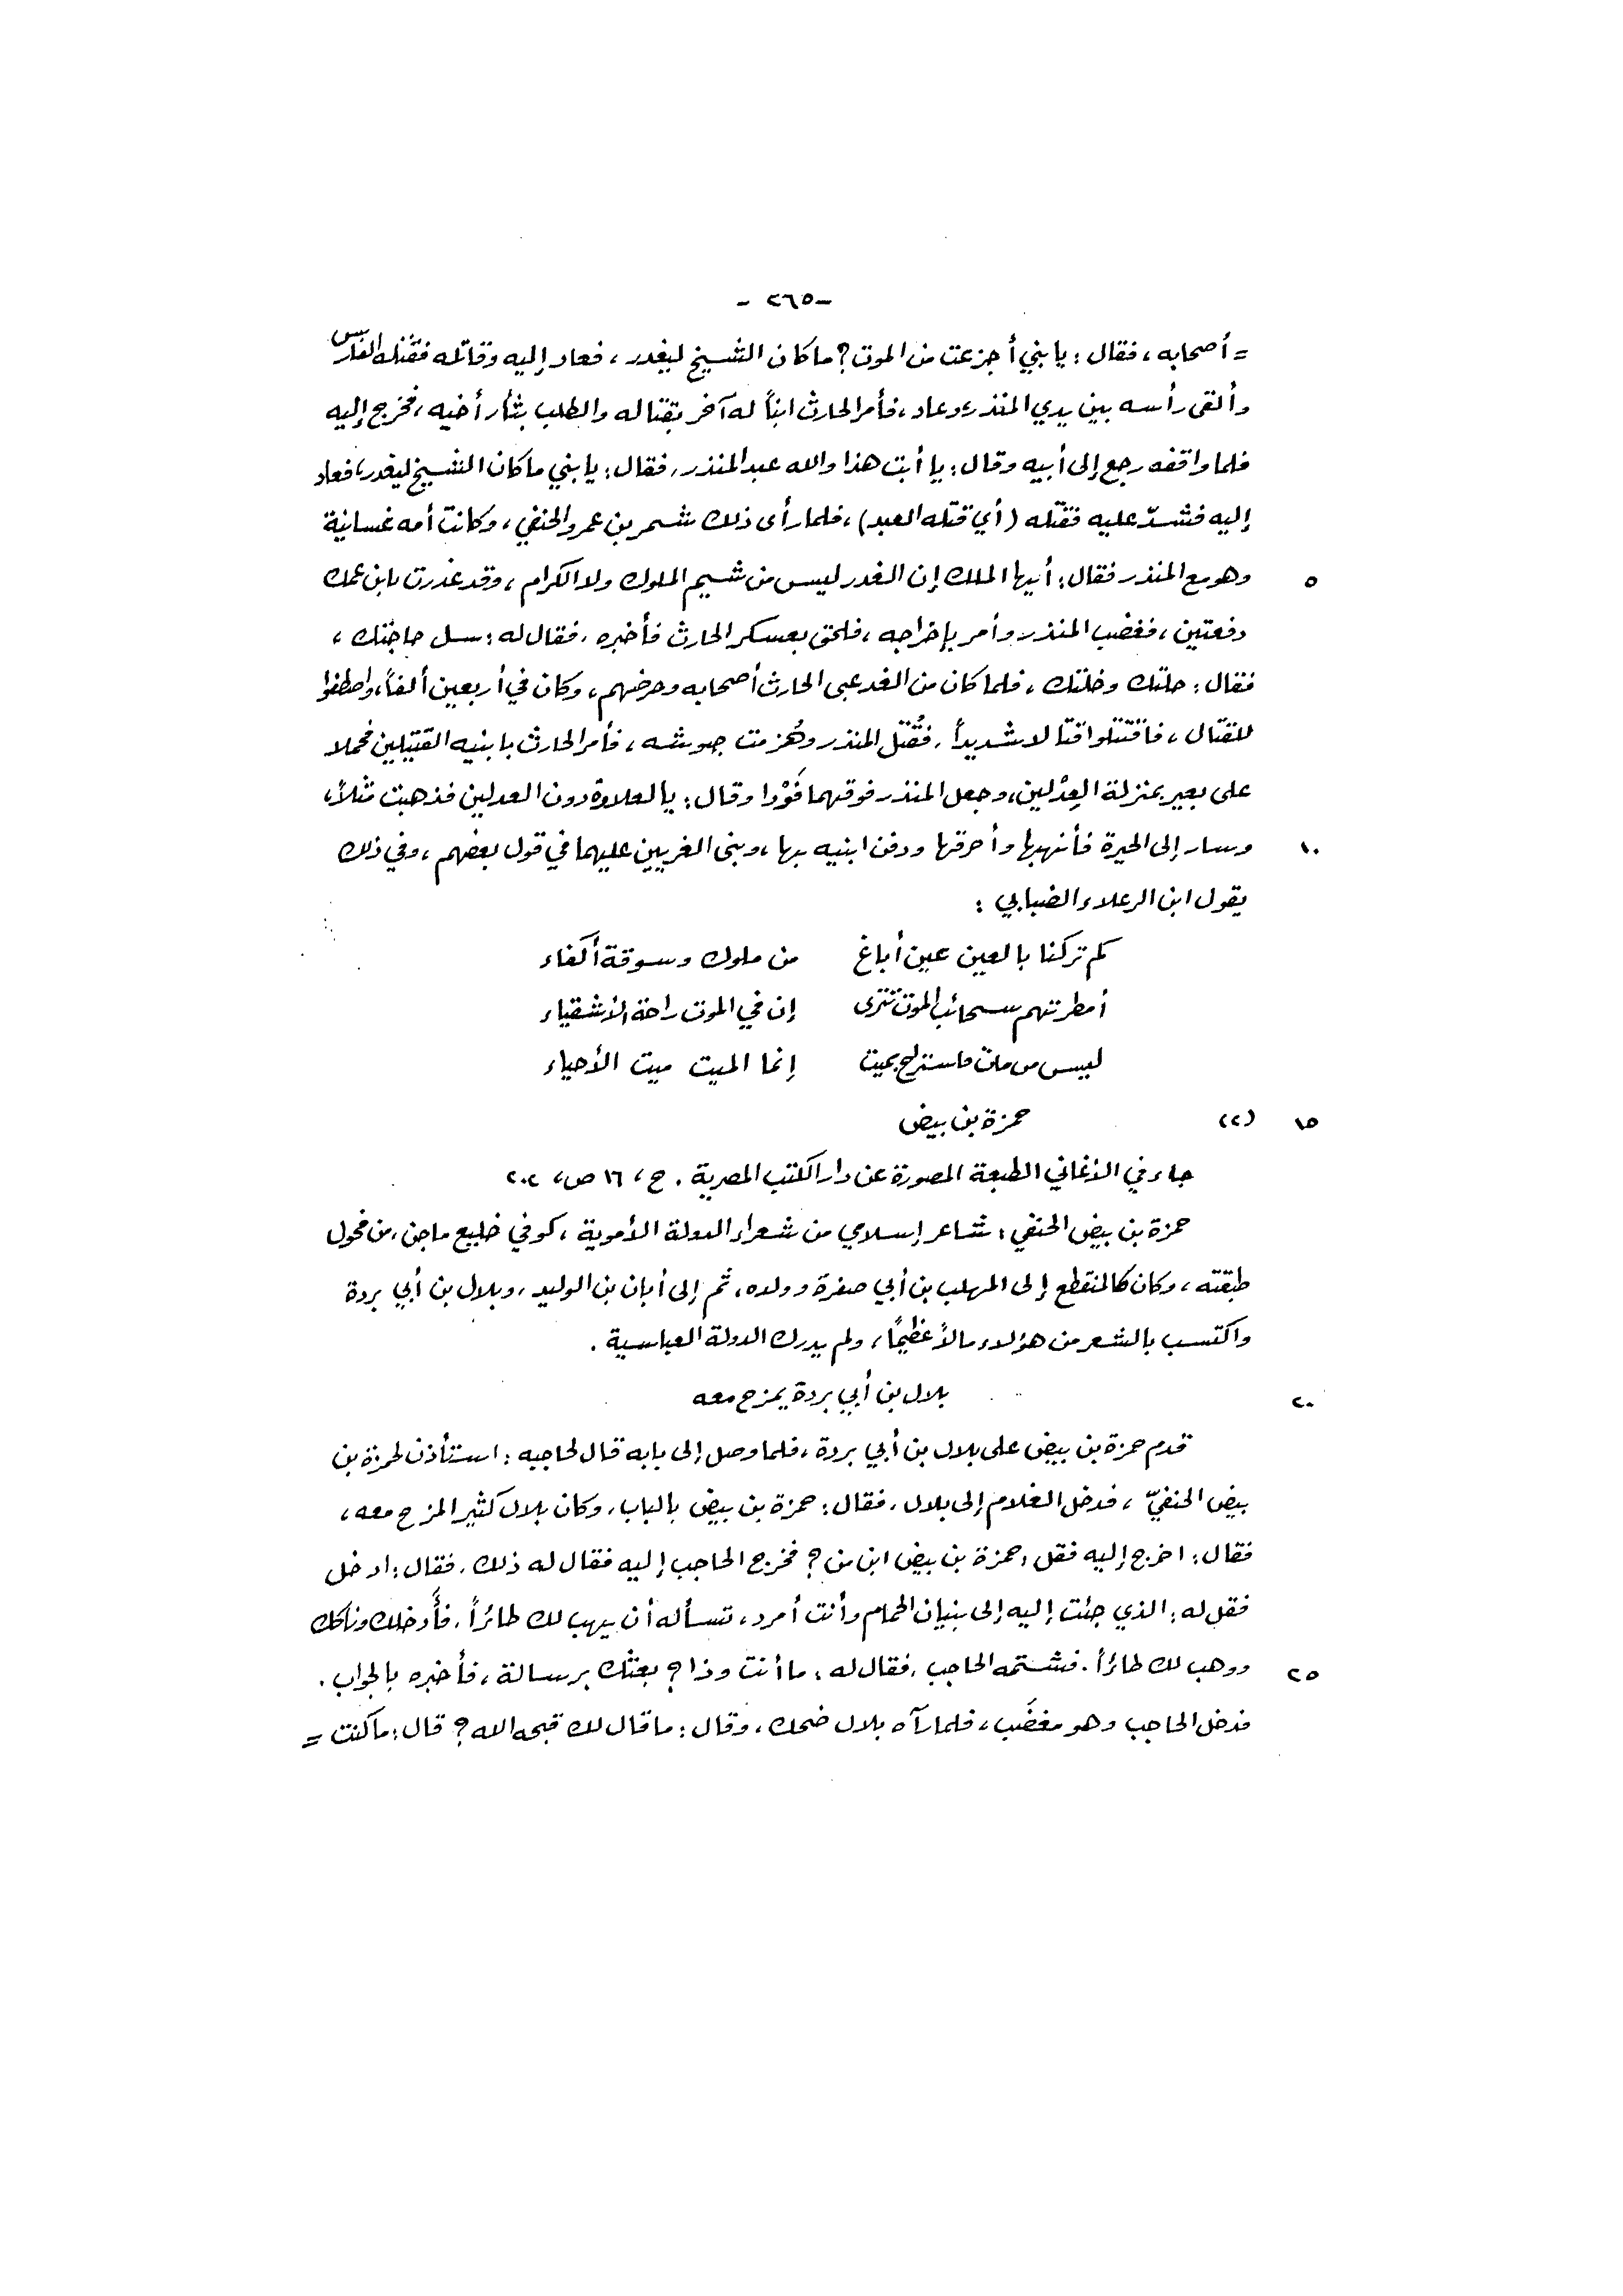 -٢٦٥-
= أصحابه، فقال: يا بني أجزعت من الموت؟ ما كان الشيخ ليغدر، فعاد إليه وقاتله فقتله الفارس
وألقى رأسه بين يدي المنذر، وعاد، فأمر الحارث ابناً له آخر بقتاله والطلب بثأر أخيه، فخرج إليه
فلما واقفه رجع إلى أبيه وقال: يا أبت هذا والله عبد المنذر، فقال: يا بني ما كان الشيخ ليغدر، فعاد
إليه فشدّ عليه فقتله (أي قتله العبد)، فلما رأى ذلك شمر بن عمرو الحنفي، وكانت أمه غسانية
٥ وهو مع المنذر فقال: أيها الملك إن الغدر ليس من شيم الملوك ولا الكرام، وقد غدرت بابن عمك
دفعتين، فغضب المنذر وأمر بإخراجه، فلحق بعسكر الحارث فأخبره، فقال له: سل حاجتك،
فقال: حلتك وخلتك، فلما كان من الغد عبى الحارث أصحابه وحرضهم، وكان في أربعين ألفاً، واصطفوا
للقتال، فاقتتلوا قتالا شديداً، فقُتل المنذر وهُزمت جيوشه، فأمر الحارث بابنيه القتيلين فحملا
على بعير بمنزلة العِدْلين، وجعل المنذر فوقهما فَوْدا وقال: يا لعلاوة دون العدلين فذهبت مثلاً،
١٠ وسار إلى الحيرة فأنهبها وأحرقها ودفن ابنيه بها، وبنى الغريين عليهما في قول بعضهم، وفي ذلك
يقول ابن الرعلاء الضبابي:
كم تركنا بالعين عين أباغ من ملوك وسوقة أكفاء
أمطرتهم سحائب الموت تترى إن في الموت راحة الأشقياء
ليس من مات فاستراح بميت إنما الميت ميت الأحياء
١٥ (٢) حمزة بن بيض
جاء في الأغاني الطبعة المصورة عن دار الكتب المصرية. ج، ١٦ ص، ٢٠٢
حمزة بن بيض الحنفي: شاعر إسلامي من شعراء الدولة الأموية، كوفي خليع ماجن، من فحول
طبقته، وكان كالمنقطع إلى المهلب بن أبي صفرة وولده، ثم إلى أبان بن الوليد، وبلال بن أبي بردة
واكتسب بالشعر من هؤلاء مالاً عظيمًا، ولم يدرك الدولة العباسية.
٢٠ بلال بن أبي بردة يمزح معه
قدم حمزة بن بيض على بلال بن أبي بردة، فلما وصل إلى بابه قال لحاجبه: استأذن لحمزة بن
بيض الحنفيّ، فدخل الغلام إلى بلال، فقال: حمزة بن بيض بالباب، وكان بلال كثير المزح معه،
فقال: اخرج إليه فقل: حمزة بن بيض ابن من؟ فخرج الحاجب إليه فقال له ذلك، فقال: ادخل
فقل له: الذي جئت إليه إلى بنيان الحمام وأنت أمرد، تسأله أن يهب لك طائراً، فأدخلك وناكك
٢٥ ووهب لك طائراً. فشتمه الحاجب، فقال له: ما أنت وذا؟ بعثك برسالة، فأخبره بالجواب.
فدخل الحاجب وهو مغضَب، فلما رآه بلال ضحك، وقال: ما قال لك قبحه الله؟ قال: ما كنت =